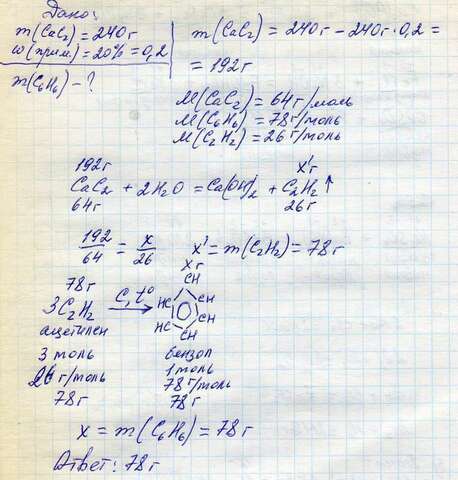 Дано:
m(CaC₂) = 240 г
ω(прим.) = 20% = 0,2
m(C₆H₆) - ?
m(CaC₂) = 240 г - 240 г · 0,2 =
= 192 г
M(CaC₂) = 64 г/моль
M(C₆H₆) = 78 г/моль
M(C₂H₂) = 26 г/моль
192 г x' г
CaC₂ + 2H₂O = Ca(OH)₂ + C₂H₂ ↑
64 г 26 г
192/64 = x/26 x' = m(C₂H₂) = 78 г
78 г x г
3C₂H₂ C, t° → CH
HC CH
HC CH
CH
ацетилен бензол
3 моль 1 моль
26 г/моль 78 г/моль
78 г 78 г
x = m(C₆H₆) = 78 г
Ответ: 78 г